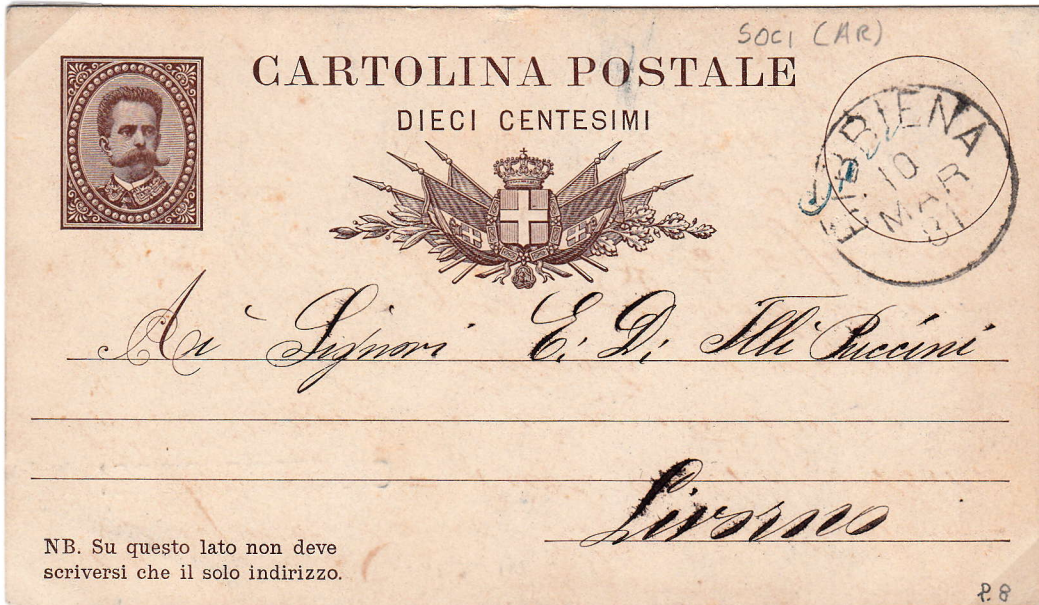 SOCI (AR)
CARTOLINA POSTALE
DIECI CENTESIMI
BIBBIENA
10
MAR
81
Ai Signori E. D. Flli Puccini
Livorno
NB. Su questo lato non deve
scriversi che il solo indirizzo.
P. 8